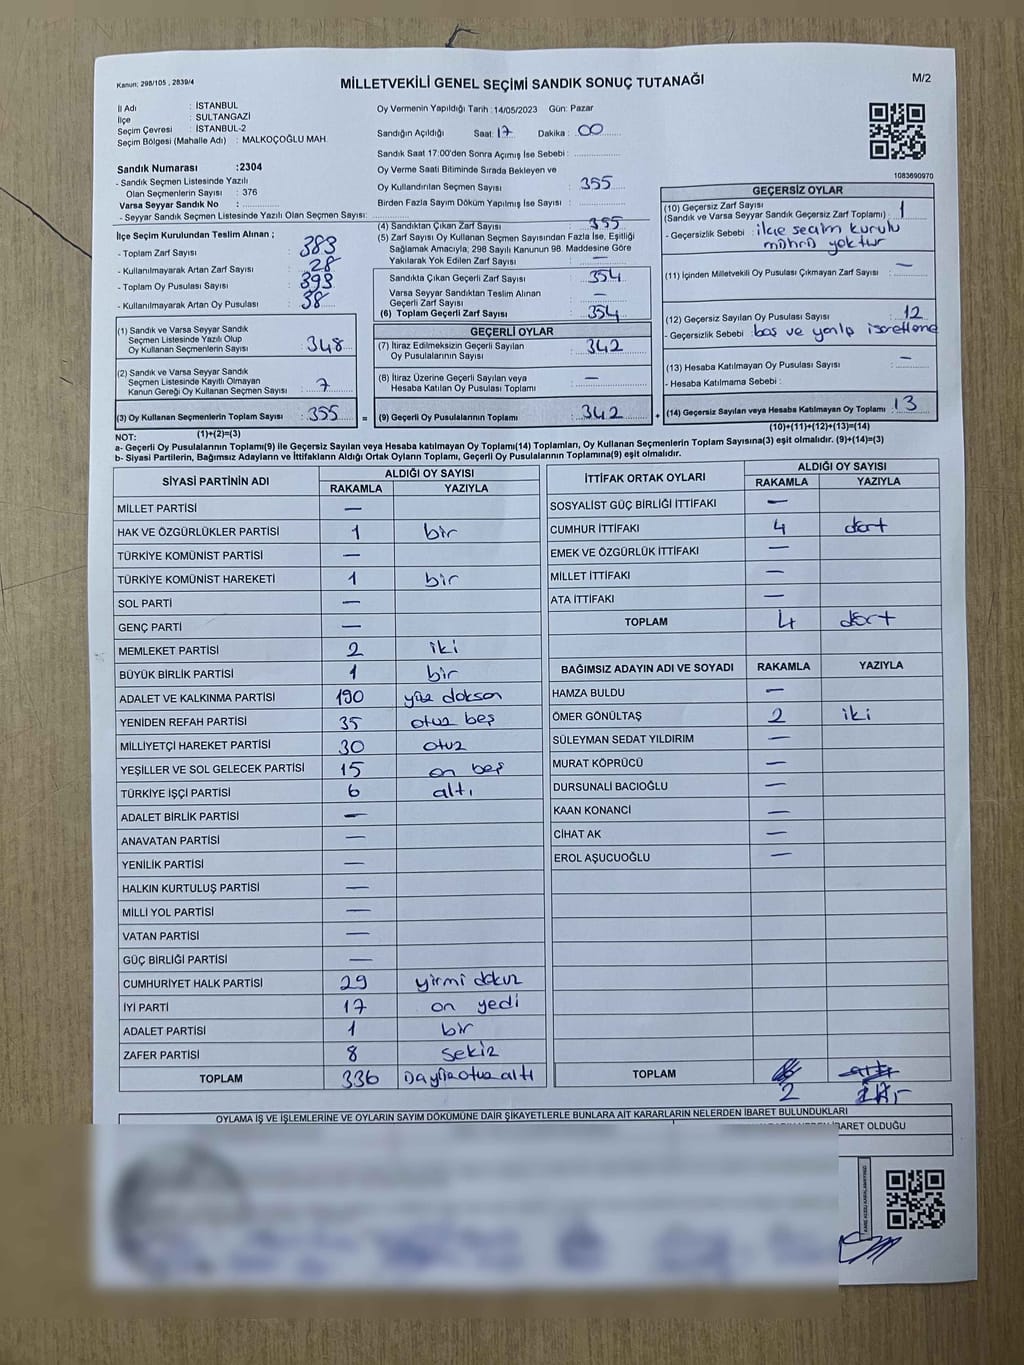 Kanun: 298/105 , 2839/4
MİLLETVEKİLİ GENEL SEÇİMİ SANDIK SONUÇ TUTANAĞI
M/2
İl Adı : İSTANBUL
İlçe : SULTANGAZİ
Seçim Çevresi : İSTANBUL-2
Seçim Bölgesi (Mahalle Adı) : MALKOÇOĞLU MAH.
Sandık Numarası :2304
- Sandık Seçmen Listesinde Yazılı
Olan Seçmenlerin Sayısı : 376
Varsa Seyyar Sandık No :
- Seyyar Sandık Seçmen Listesinde Yazılı Olan Seçmen Sayısı:
Oy Vermenin Yapıldığı Tarih :14/05/2023 Gün: Pazar
Sandığın Açıldığı Saat: 17 Dakika : 00
Sandık Saat 17:00'den Sonra Açımış İse Sebebi :
Oy Verme Saati Bitiminde Sırada Bekleyen ve
Oy Kullandırılan Seçmen Sayısı : 355
Birden Fazla Sayım Döküm Yapılmış İse Sayısı :
1083690970
İlçe Seçim Kurulundan Teslim Alınan ;
- Toplam Zarf Sayısı : 383
- Kullanılmayarak Artan Zarf Sayısı : 28
- Toplam Oy Pusulası Sayısı : 393
- Kullanılmayarak Artan Oy Pusulası : 38
(1) Sandık ve Varsa Seyyar Sandık
Seçmen Listesinde Yazılı Olup
Oy Kullanan Seçmenlerin Sayısı : 348
(2) Sandık ve Varsa Seyyar Sandık
Seçmen Listesinde Kayıtlı Olmayan
Kanun Gereği Oy Kullanan Seçmen Sayısı : 7
(3) Oy Kullanan Seçmenlerin Toplam Sayısı : 355 =
(1)+(2)=(3)
(4) Sandıktan Çıkan Zarf Sayısı : 355
(5) Zarf Sayısı Oy Kullanan Seçmen Sayısından Fazla İse, Eşitliği
Sağlamak Amacıyla, 298 Sayılı Kanunun 98. Maddesine Göre
Yakılarak Yok Edilen Zarf Sayısı : —
Sandıkta Çıkan Geçerli Zarf Sayısı : 354
Varsa Seyyar Sandıktan Teslim Alınan
Geçerli Zarf Sayısı : —
(6) Toplam Geçerli Zarf Sayısı : 354
GEÇERLİ OYLAR
(7) İtiraz Edilmeksizin Geçerli Sayılan
Oy Pusulalarının Sayısı : 342
(8) İtiraz Üzerine Geçerli Sayılan veya
Hesaba Katılan Oy Pusulası Toplamı : —
(9) Geçerli Oy Pusulalarının Toplamı : 342 +
GEÇERSİZ OYLAR
(10) Geçersiz Zarf Sayısı
(Sandık ve Varsa Seyyar Sandık Geçersiz Zarf Toplamı) : 1
- Geçersizlik Sebebi : ilçe seçim kurulu
mührü yoktur
(11) İçinden Milletvekili Oy Pusulası Çıkmayan Zarf Sayısı : —
(12) Geçersiz Sayılan Oy Pusulası Sayısı : 12
- Geçersizlik Sebebi : boş ve yanlış işaretleme
(13) Hesaba Katılmayan Oy Pusulası Sayısı : —
- Hesaba Katılmama Sebebi :
(14) Geçersiz Sayılan veya Hesaba Katılmayan Oy Toplamı : 13
(10)+(11)+(12)+(13)=(14)
NOT:
a- Geçerli Oy Pusulalarının Toplamı(9) ile Geçersiz Sayılan veya Hesaba katılmayan Oy Toplamı(14) Toplamları, Oy Kullanan Seçmenlerin Toplam Sayısına(3) eşit olmalıdır. (9)+(14)=(3)
b- Siyasi Partilerin, Bağımsız Adayların ve İttifakların Aldığı Ortak Oyların Toplamı, Geçerli Oy Pusulalarının Toplamına(9) eşit olmalıdır.
SİYASİ PARTİNİN ADI ALDIĞI OY SAYISI
RAKAMLA YAZIYLA
MİLLET PARTİSİ —
HAK VE ÖZGÜRLÜKLER PARTİSİ 1 bir
TÜRKİYE KOMÜNİST PARTİSİ —
TÜRKİYE KOMÜNİST HAREKETİ 1 bir
SOL PARTİ —
GENÇ PARTİ —
MEMLEKET PARTİSİ 2 iki
BÜYÜK BİRLİK PARTİSİ 1 bir
ADALET VE KALKINMA PARTİSİ 190 yüz doksan
YENİDEN REFAH PARTİSİ 35 otuz beş
MİLLİYETÇİ HAREKET PARTİSİ 30 otuz
YEŞİLLER VE SOL GELECEK PARTİSİ 15 on beş
TÜRKİYE İŞÇİ PARTİSİ 6 altı
ADALET BİRLİK PARTİSİ —
ANAVATAN PARTİSİ —
YENİLİK PARTİSİ —
HALKIN KURTULUŞ PARTİSİ —
MİLLİ YOL PARTİSİ —
VATAN PARTİSİ —
GÜÇ BİRLİĞİ PARTİSİ —
CUMHURİYET HALK PARTİSİ 29 yirmi dokuz
İYİ PARTİ 17 on yedi
ADALET PARTİSİ 1 bir
ZAFER PARTİSİ 8 sekiz
TOPLAM 336 üçyüzotuz altı
İTTİFAK ORTAK OYLARI ALDIĞI OY SAYISI
RAKAMLA YAZIYLA
SOSYALİST GÜÇ BİRLİĞİ İTTİFAKI —
CUMHUR İTTİFAKI 4 dört
EMEK VE ÖZGÜRLÜK İTTİFAKI —
MİLLET İTTİFAKI —
ATA İTTİFAKI —
TOPLAM 4 dört
BAĞIMSIZ ADAYIN ADI VE SOYADI RAKAMLA YAZIYLA
HAMZA BULDU —
ÖMER GÖNÜLTAŞ 2 iki
SÜLEYMAN SEDAT YILDIRIM —
MURAT KÖPRÜCÜ —
DURSUNALİ BACIOĞLU —
KAAN KONANCİ —
CİHAT AK —
EROL AŞUCUOĞLU —
TOPLAM
2 iki
OYLAMA İŞ VE İŞLEMLERİNE VE OYLARIN SAYIM DÖKÜMÜNE DAİR ŞİKAYETLERLE BUNLARA AİT KARARLARIN NELERDEN İBARET BULUNDUKLARI
İBARET OLDUĞU